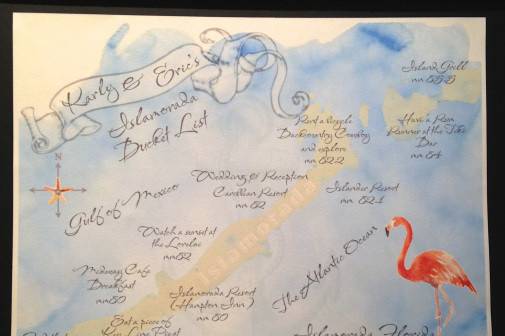 Karly & Eric's
Islamorada
Bucket List
Island Grill
mm 85.5
Rent a bicycle
Backcountry Cowboy
and explore
mm 82.2
Have a Rum
Runner at the Tiki
Bar
mm 84
N
Gulf of Mexico
Wedding & Reception
Caribbean Resort
mm 82
Islander Resort
mm 82.1
Islamorada
Watch a sunset at
the Lorelei
mm 82
The Atlantic Ocean
Midway Cafe
Breakfast
mm 80
Islamorada Resort
(Hampton Inn)
mm 80
Eat a piece of
Key Lime Pie at
Islamorada, Florida